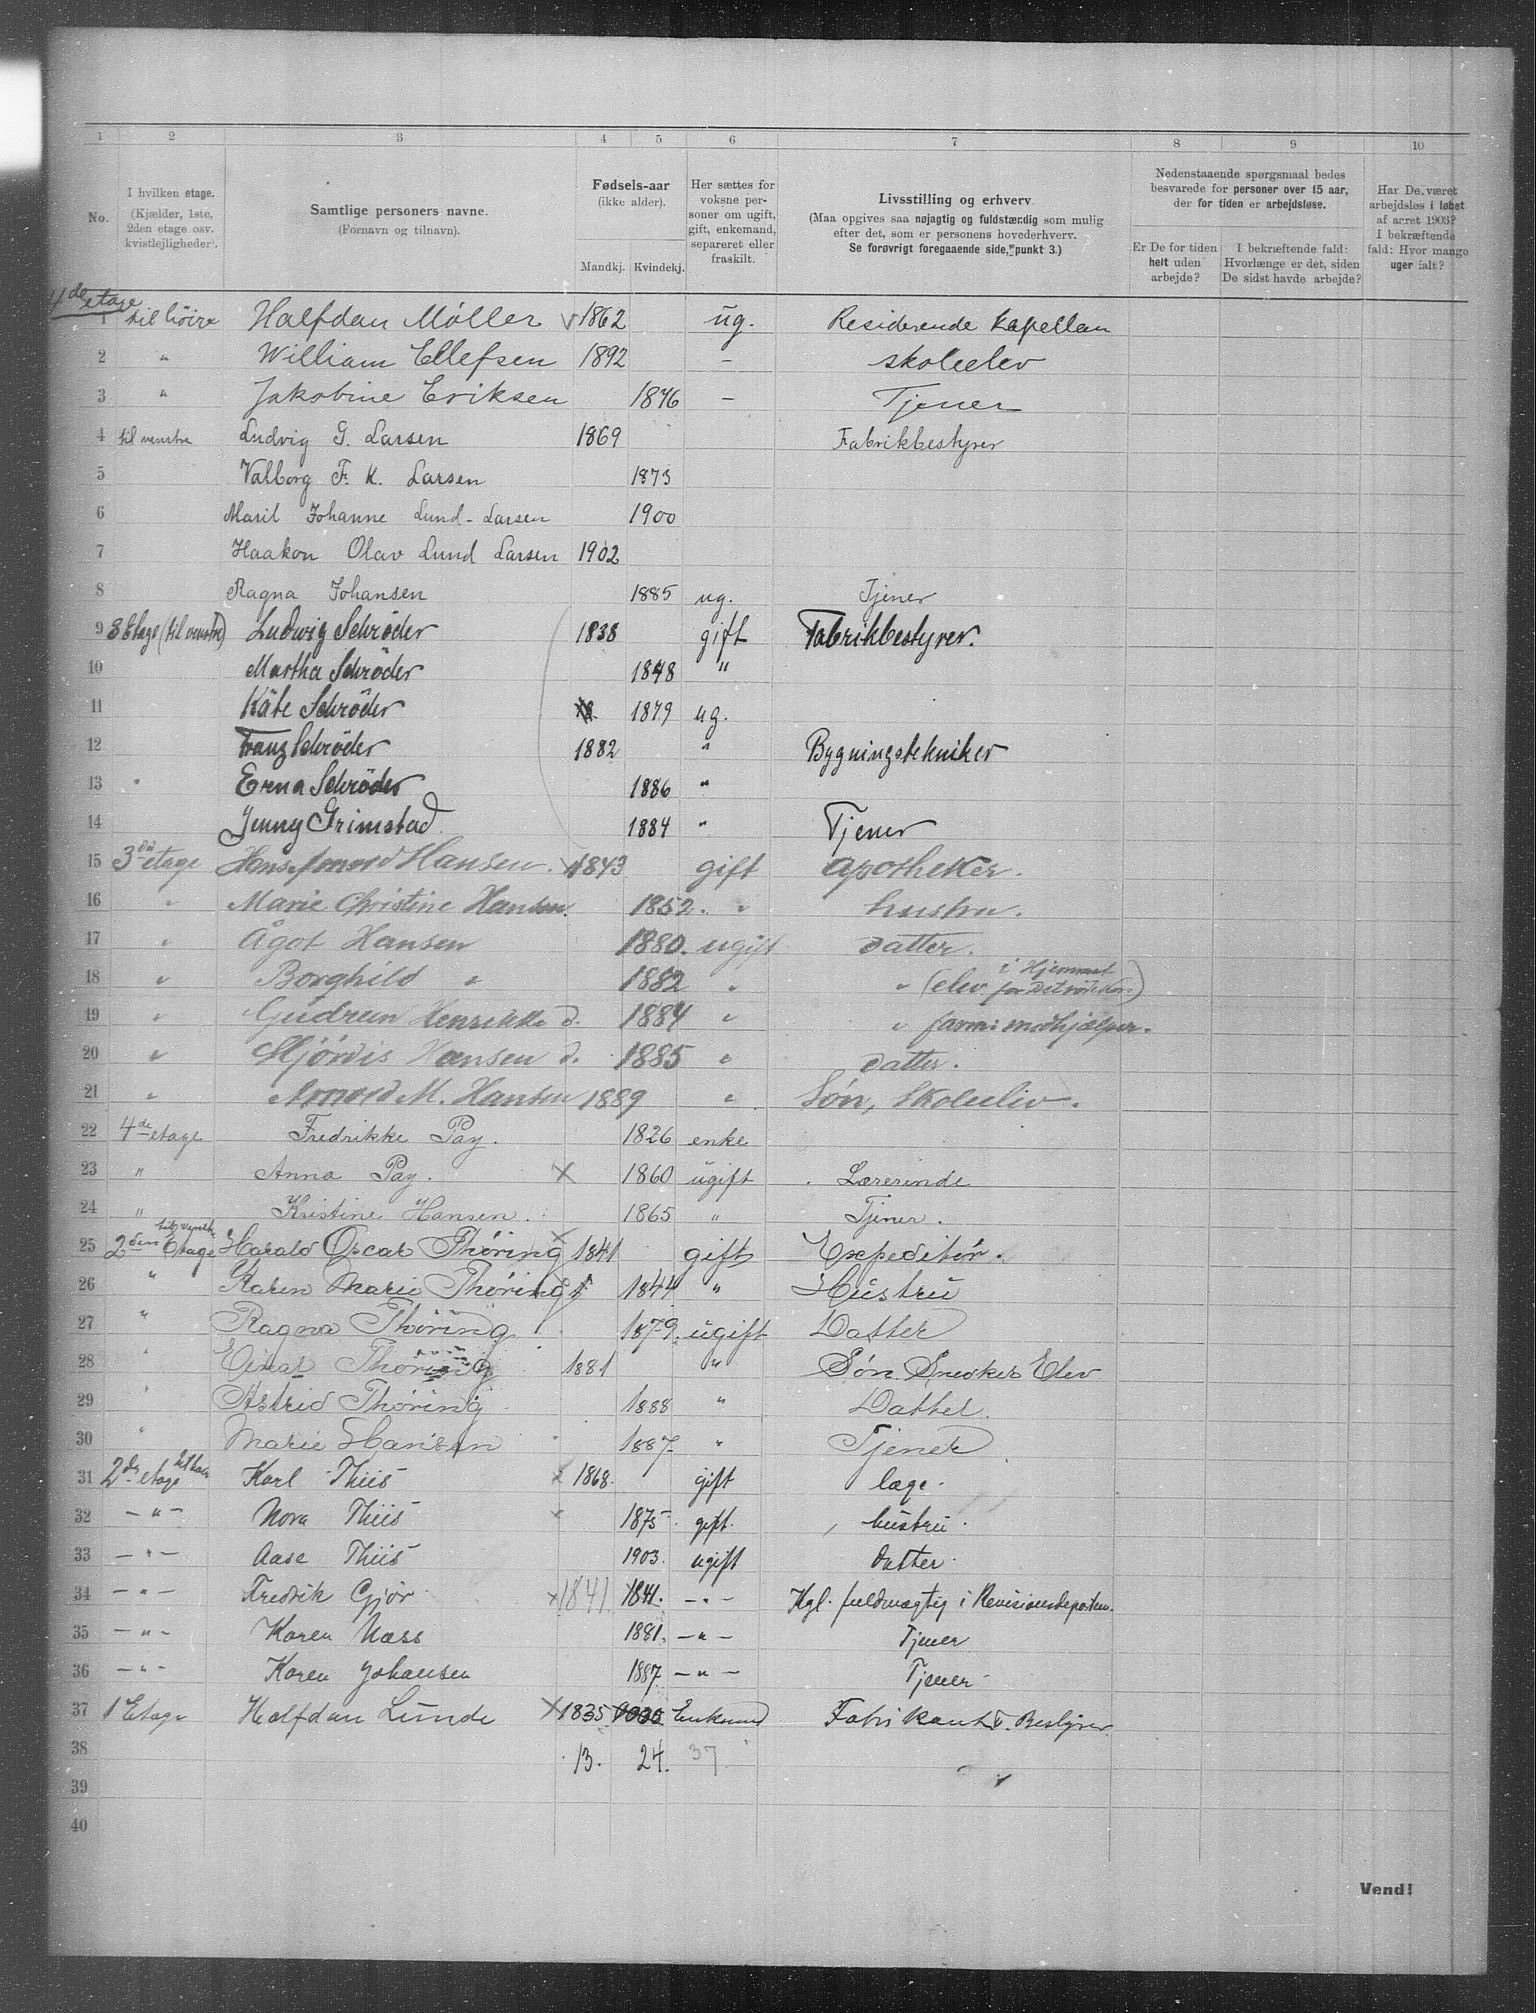 1 2 3 4 5 6 7 8 9 10
No.
I hvilken etage. (Kjælder, 1ste, 2den etage osv. kvistlejligheder).
Samtlige personers navne. (Fornavn og tilnavn).
Fødsels-aar (ikke alder). Mandkj. Kvindekj.
Her sættes for voksne personer om ugift, gift, enkemand, separeret eller fraskilt.
Livsstilling og erhverv. (Maa opgives saa nøjagtig og fuldstændig som mulig efter det, som er personens hovederhverv. Se forøvrigt foregaaende side, punkt 3.)
Nedenstaaende spørgsmaal bedes besvarede for personer over 15 aar, der for tiden er arbejdsløse.
Er De for tiden helt uden arbejde?
I bekræftende fald: Hvorlænge er det, siden De sidst havde arbejde?
Har De været arbejdsløs i løbet af aaret 1903? I bekræftende fald: Hvor mange uger ialt?
4de etage
1 til höire Halfdan Möller V 1862 ug. Residerende kapellan
2 " William Ellefsen 1892 — skoleelev
3 " Jakobine Eriksen 1876 — Tjener
4 til venstre Ludvig G. Larsen 1869 Fabrikbestyrer
5 Valborg F. K. Larsen 1873
6 Maril Johanne Lund-Larsen 1900
7 Haakon Olav Lund Larsen 1902
8 Ragna Johansen 1885 ug. Tjener
9 3 Etage (til venstre) Ludwig Schröder 1838 gift Fabrikbestyrer.
10 Martha Schröder 1848 "
11 Käte Schröder 1879 ug.
12 Franz Schröder 1882 " Bygningstekniker
13 " Erna Schröder 1886 "
14 Jenny Grimstad. 1884 " Tjener
15 3die etage Hans Arnold Hansen. 1843 gift apotheker.
16 " Marie Christine Hansen. 1852. " hustru.
17 " Ågot Hansen 1880. ugift datter.
18 " Borghild " 1882 " " (elev i Hjemmet for Det röde Kors)
19 " Gudrun Henrikke d. 1884 " " farm: medhjælper.
20 " Hjördis Hansen d. 1885 " datter.
21 " Arnold M. Hansen 1889 " Søn, Skoleelev.
22 4de etage Fredrikke Pay. 1826 enke
23 " Anna Pay. X 1860 ugift Lærerinde
24 " Kristine Hansen. 1865 " Tjener.
25 2den Etage til venstre Harald Oscar Thöring X 1841 gift Expeditör.
26 " Karen Marie Thöring 1844 " Hustru
27 " Ragna Thöring 1879. ugift Datter
28 " Einar Thöring 1881 " Søn Snedker Elev
29 " Astrid Thöring 1888 " Datter.
30 " Marie Hansen 1887. " Tjener
31 2de etage Karl Thiis x 1868. gift læge.
32 — " — Nora Thiis x 1875. gift. hustru.
33 — " — Aase Thiis 1903. ugift datter.
34 — " — Fredrik Gjör x 1841 1841. — " — Kgl. fuldmægtig i Revisionsdeparten.
35 — " — Karen Næss 1881. — " — Tjener
36 — " — Karen Johansen 1887 — " — Tjener
37 1 Etage Halfdan Lunde X 1835 Enkemd Fabrikant F. Bestyrer.
38 13. 24. 37
39
40
Vend!